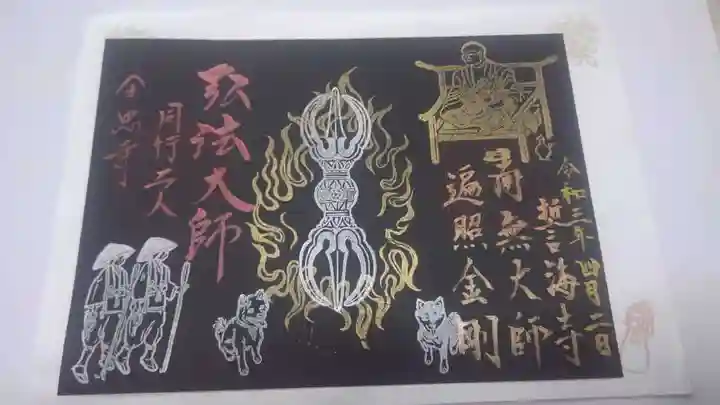 令和三年四月二日
誓海寺
南無大師
遍照金剛
弘法大師
同行二人
全忠寺